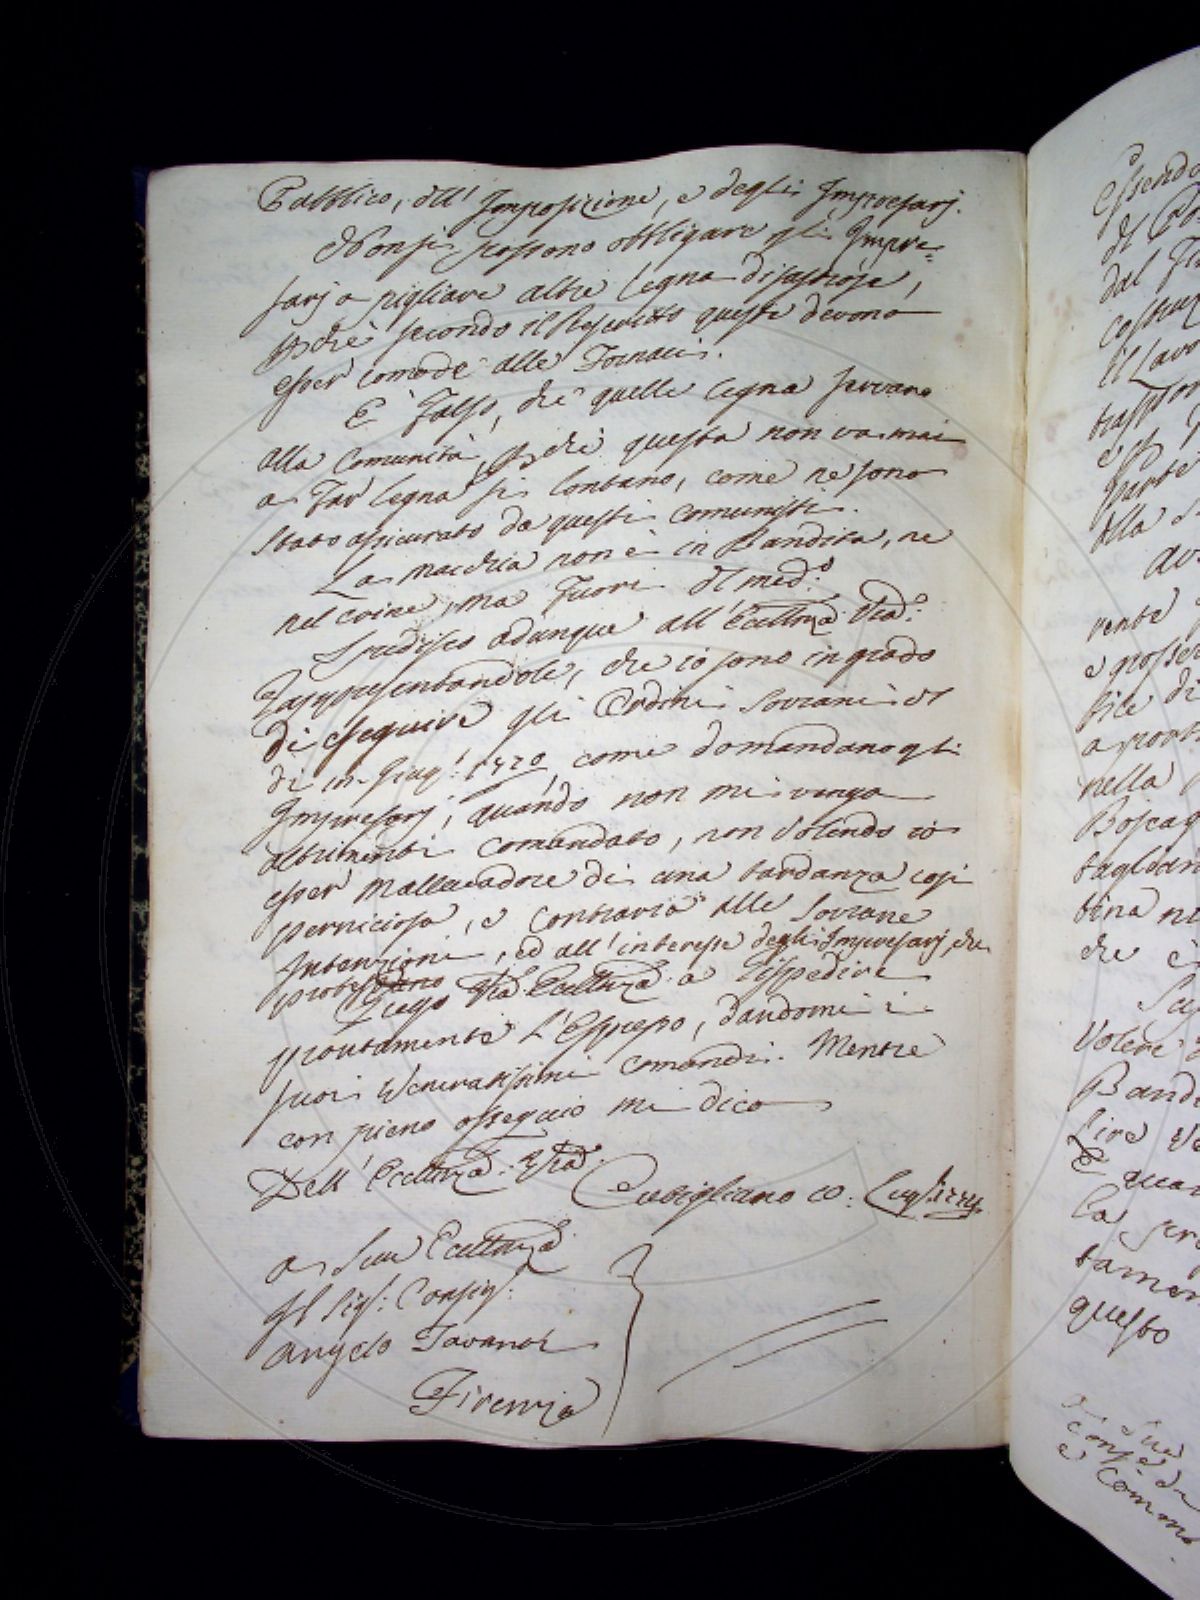 Pubblico, dell' Imposizione, e degli Impresarj.
Non si possono obbligare gli Impre=
sarj a pigliare altre legna disastrose,
p. chè secondo il Rescritto queste devono
esser comode alle Fornaci.
E' Falso, che quelle legna servano
alla Comunità, p. chè questa non va mai
a far legna sì lontano, come ne sono
stato assicurato da questi comunisti.
La macchia non è in Bandita, ne
nel confine, ma fuori del med.º
Spedisco adunque all' Eccellenza Vra.
Rappresentandole, che io sono in grado
di eseguire gli Ordini Sovrani del
dì Giug.: come domandano gli
Impresarj, quando non mi venga
altrimenti comandato, non volendo io
esser mallevadore di una tardanza così
perniciosa, e contraria alle Sovrane
Intenzioni, ed all' interesse degli Impresarj, che
protestano
Prego Vra. Eccellenza a rispedire
prontamente l'Espresso, dandomi i
suoi Veneratissimi comandi. Mentre
con pieno ossequio mi dico
Dell' Eccellenza Vra.
Cutigliano Lug.
a Sua Eccellenza
Il Sig.: Consig.:
Angelo Tavanti
Firenze
Essendo
del
dal
il Lavo
e
Parte
alla
vente
e grosse
a
nella
Boscag
taglian
tina
che è
Volere
Bandi
Lire
e quan
la
tamen
questo
e Comm